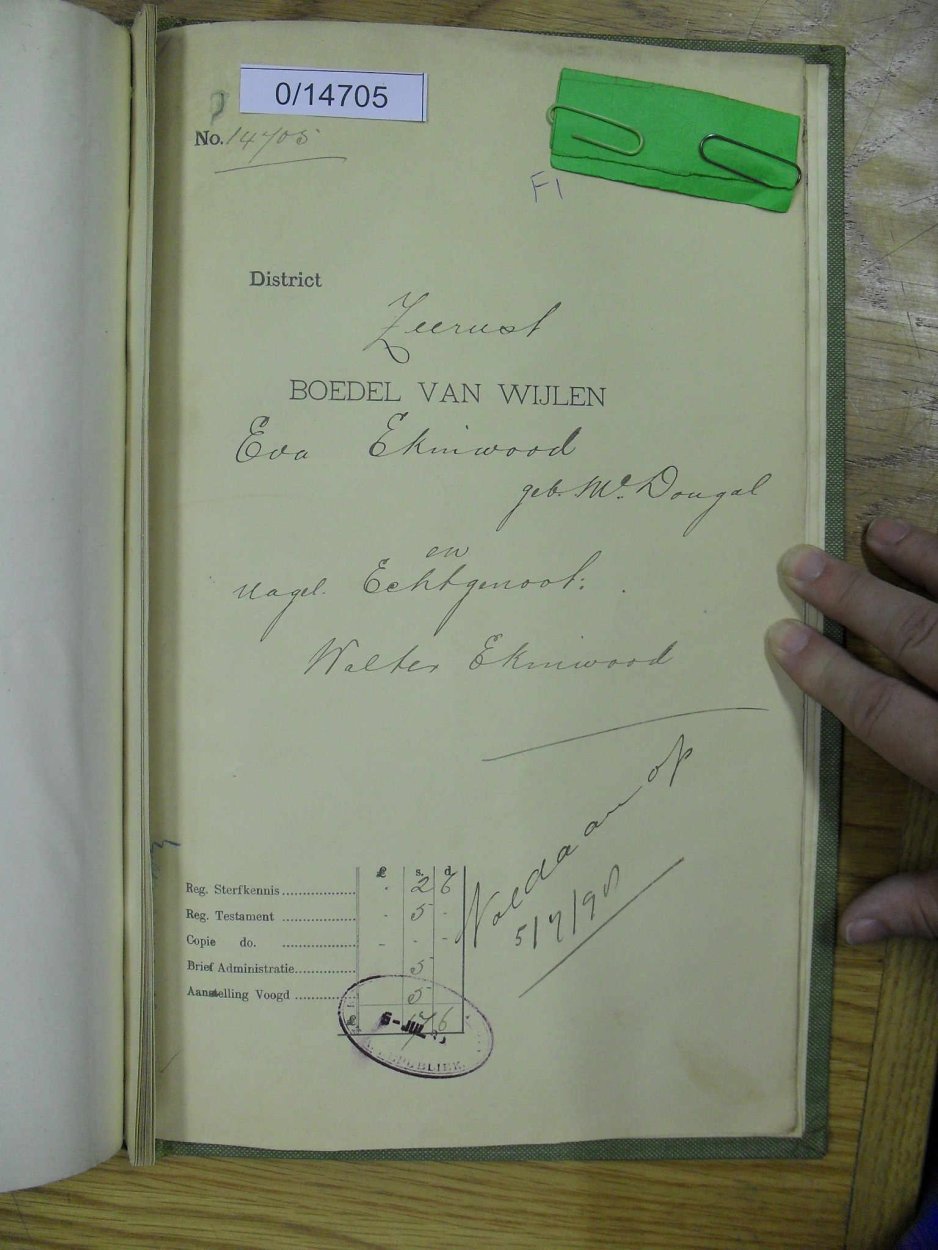 0/14705
No. 14705
F1
District
Zeerust
BOEDEL VAN WIJLEN
Eva Ekinwood
geb. Mc. Dougal
en
nagel. Echtgenoot:
Walter Ekinwood
Voldaan op
5/7/98
£ s. d.
Reg. Sterfkennis . 2 6
Reg. Testament - 5 -
Copie do. - - -
Brief Administratie 5
Aanstelling Voogd 5
£ 17 6
6 - JUL